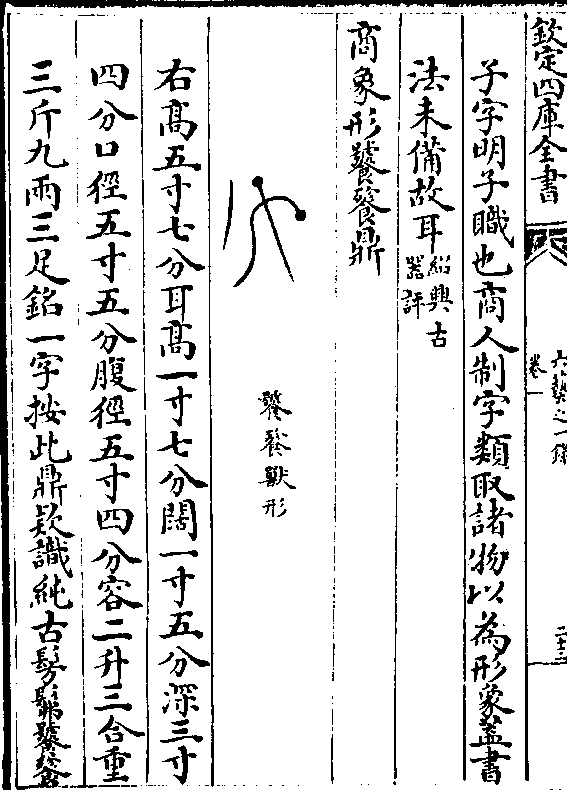 欽定四庫全書
卷一
六藝之一錄
二十三
子字明子職也商人制字類取諸物以為形象蓋書
法未備故耳紹興古器評
商象形饕餮鼎
饕餮獸形
右髙五寸七分耳髙一寸七分闊一寸五分深三寸
四分口徑五寸五分腹徑五寸四分容二升三合重
三斤九兩三足銘一字按此鼎欵識純古髣髴饕餮